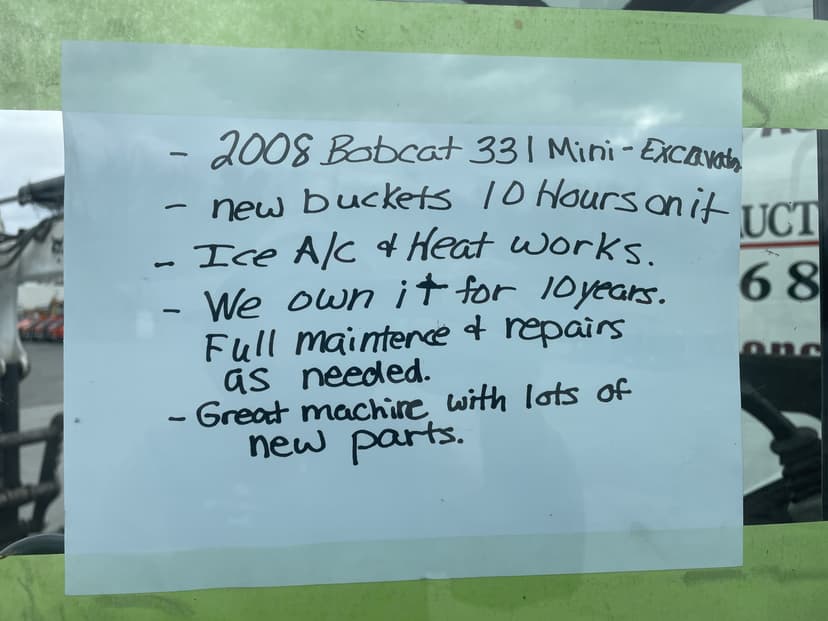 - 2008 Bobcat 331 Mini-Excavator
- new buckets 10 Hours on it
- Ice A/C & Heat works.
- We own it for 10 years.
Full maintence & repairs
as needed.
- Great machine with lots of
new parts.
UCT
68